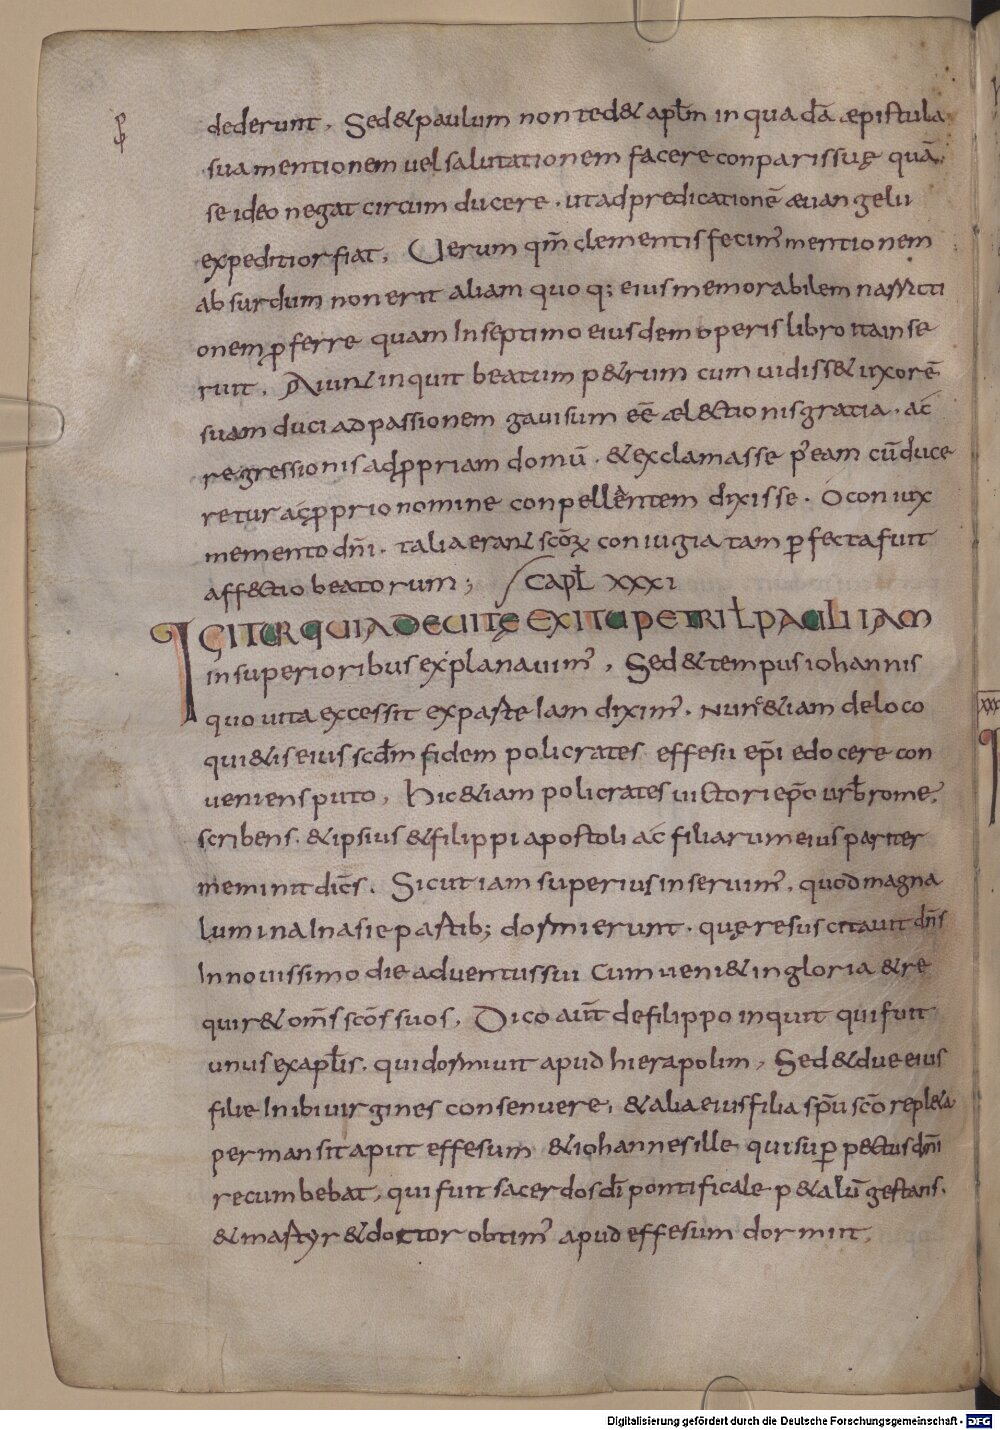 dederunt. Sed & paulum non ted& apłm in quadā æpistula
sua mentionem vel salutationem facere conparis suę quā
se ideo negat circum ducere. ut ad predicationē æuangelii
expeditior fiat. Verum qm̄ clementis fecim' mentionem
absurdum non erit aliam quoq; eius memorabilem narrati
onem ꝓferre quam In septimo eiusdem operis libro ita inse
ruit. Aiunt inquit beatum p&rum cum uidiss& uxorē
suam duci ad passionem gauisum eē æl&ctionis gratia. ac
regressionis ad ꝓpriam domū. & exclamasse p' eam cū duce
retur ac ꝓprio nomine conpellentem dixisse. O coniux
memento dn̄i. talia erant sc̄oꝝ coniugia tam ꝑfecta fuit
aff&ctio beatorum; Capł XXXI
IGITUR QUIA DE VITĘ EXITU PETRI ł PAULI IAM
in superioribus explanauim'. Sed & tempus iohannis
quo uita excessit ex parte Iam dixim'. Nunc &iam de loco
qui&is eius scdm̄ fidem policrates effesii ep̄i edocere con
ueniens puto. Hic &iam policrates uictori ep̄o urb̄ rome.
scribens. & ipsius & filippi apostoli ac filiarum eius pariter
meminit dic̄s. Sicut iam superius inseruim'. quod magna
lumina In asie partib; dormierunt. quę resuscitauit dn̄s
In nouissimo die aduentus sui cum ueni& in gloria & re
quir& om̄s sc̄os suos. Dico aūt de filippo inquit qui fuit
unus ex apłis. qui dormiuit apud hierapolim. Sed & due eius
filie Inibi uirgines consenuere. & alia eius filia sp̄u sc̄o repl&a
permansit aput effesum & iohannes ille qui suꝑ p&ctus dn̄i
recumbebat. qui fuit sacerdos dī pontificale p&alū gestans.
& martyr & doctor obtim' apud effesum dormiit.
Digitalisierung gefördert durch die Deutsche Forschungsgemeinschaft - DFG